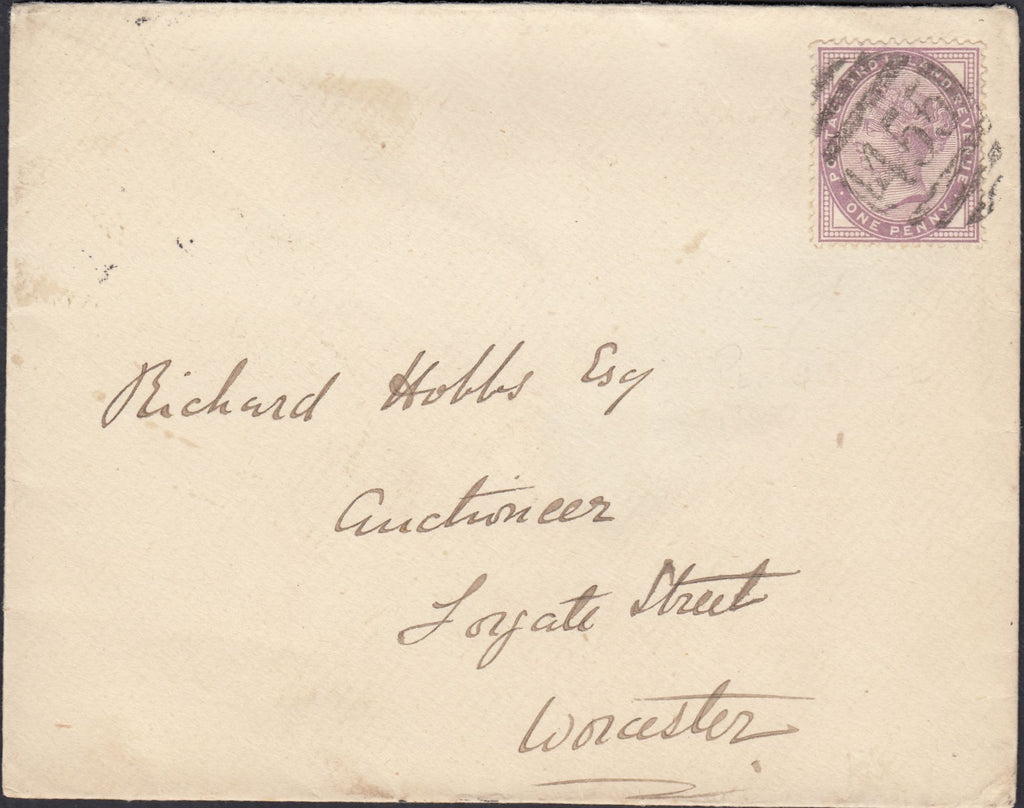 POSTAGE AND INLAND REVENUE
ONE PENNY
Richard Hobbs Esq
Auctioneer
Forgate Street
Worcester